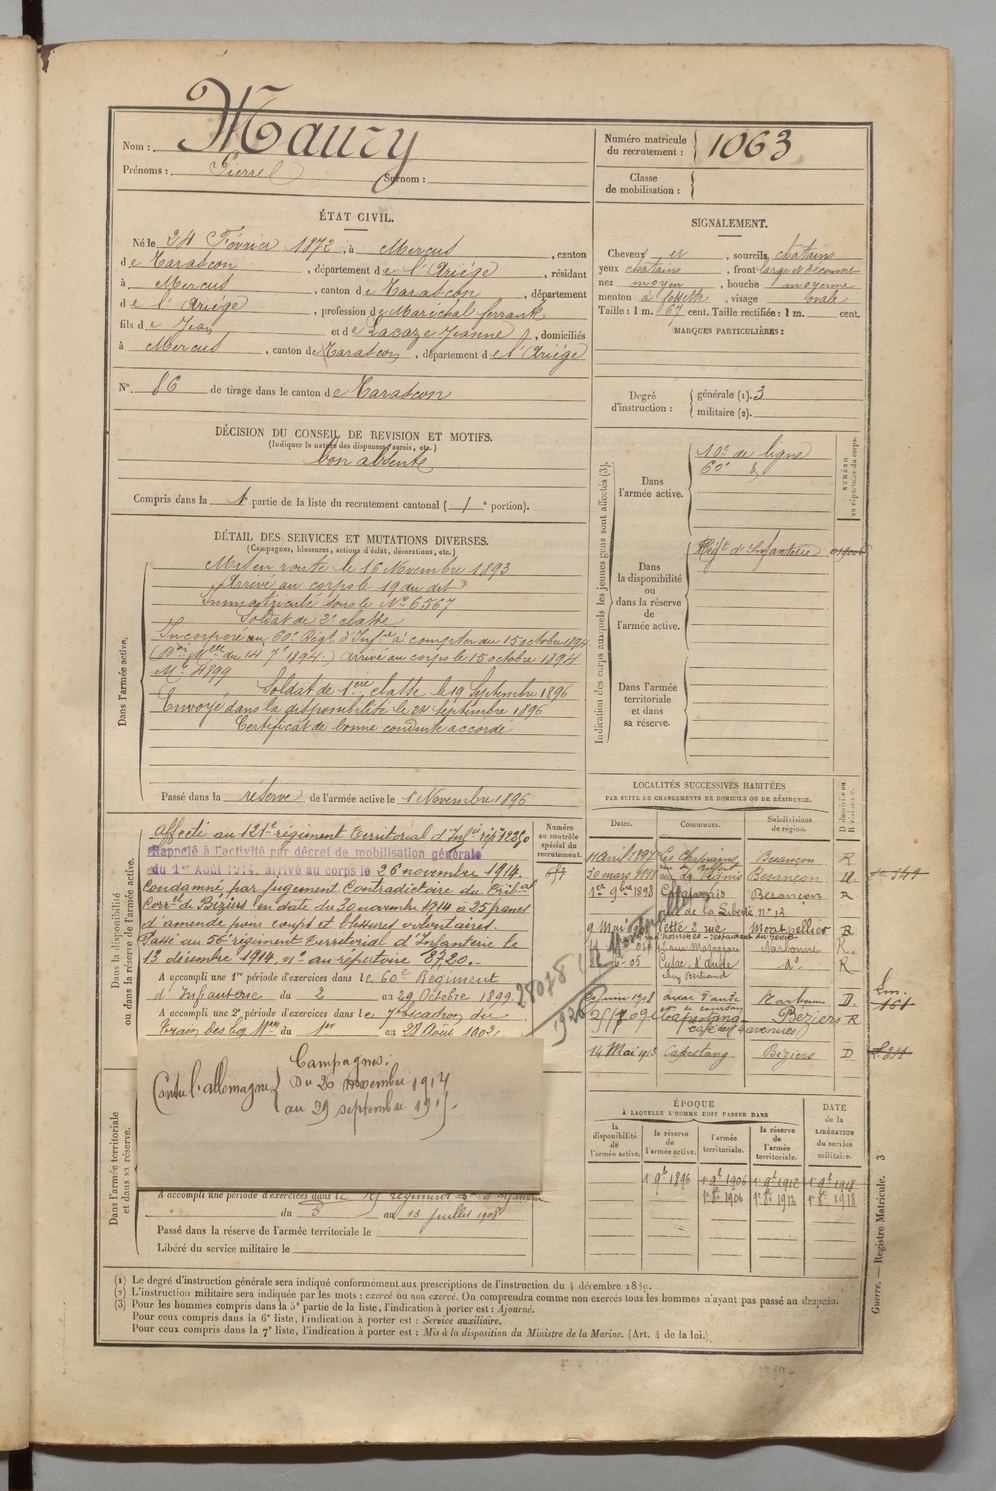 Nom : Maury
Numéro matricule du recrutement : 1063
Prénoms : Pierre Surnom :
Classe de mobilisation :
ÉTAT CIVIL.
Né le 24 Février 1872, à Mercus, canton
de Tarascon, département de l'Ariège, résidant
à Mercus, canton de Tarascon, département
de l'Ariège, profession de Maréchal ferrant
fils de Jean et de Lacaze Jeanne, domiciliés
à Mercus, canton de Tarascon, département de l'Ariège
N° 86 de tirage dans le canton de Tarascon
SIGNALEMENT.
Cheveux et, sourcils châtains
yeux châtains, front large et découvert
nez moyen, bouche moyenne
menton à fossette, visage ovale
Taille : 1 m. 67 cent. Taille rectifiée : 1 m. cent.
MARQUES PARTICULIÈRES :
Degré d'instruction :
générale (1). 3
militaire (2).
DÉCISION DU CONSEIL DE REVISION ET MOTIFS.
(Indiquer la nature des dispenses, sursis, etc.)
bon absent
Compris dans la 1e partie de la liste du recrutement cantonal ( 1e portion).
DÉTAIL DES SERVICES ET MUTATIONS DIVERSES.
(Campagnes, blessures, actions d'éclat, décorations, etc.)
Dans l'armée active.
Mis en route le 16 Novembre 1893
Arrivé au corps le 19 du dit
Immatriculé sous le N° 6567
Soldat de 2e classe
Incorporé au 60e Régt d'Infie à compter du 15 octobre 1894
(Don Mlle du 14 7e 1894) arrivé au corps le 15 octobre 1894
Mle 4899
Soldat de 1ère classe le 19 Septembre 1896
Envoyé dans la disponibilité le 24 Septembre 1896
Certificat de bonne conduite accordé
Passé dans la réserve de l'armée active le 1 Novembre 1896
Indication des corps auxquels les jeunes gens sont affectés (3).
NUMÉRO au répertoire du corps.
Dans l'armée active.
10e de ligne
60e d°
Dans la disponibilité ou dans la réserve de l'armée active.
Régt d'Infanterie
Dans l'armée territoriale et dans sa réserve.
Dans la disponibilité ou dans la réserve de l'armée active.
affecté au 121e régiment territorial d'Infie
Rappelé à l'activité par décret de mobilisation générale
du 1er Août 1914, arrivé au corps le 26 novembre 1914.
Condamné par jugement Contradictoire du Tribal
Correl de Béziers en date du 30 novembre 1914 à 25 francs
d'amende pour coups et blessures volontaires.
Passé au 56e régiment territorial d'Infanterie le
13 décembre 1914, n° au répertoire 8720.-
A accompli une 1re période d'exercices dans le 60e Régiment
d'Infanterie du 2 au 29 Octobre 1899.
A accompli une 2e période d'exercices dans le 7e escadron du
Train des Eq. Mres du 1er au 28 Août 1902.
Numéro au contrôle spécial du recrutement.
28078
1926
Montpellier
LOCALITÉS SUCCESSIVES HABITÉES
PAR SUITE DE CHANGEMENTS DE DOMICILE OU DE RÉSIDENCE.
Dates. Communes. Subdivisions de région. D domicile ou R résidence.
11 avril 1897 Les Chaprais Besançon R
20 mars 1898 Besançon
1er 9bre 1898 Chaprais Besançon R
rue de la Liberté n° 13
9 Mai Cette 2 rue Montpellier R
Narbonne R
05 Cuxac d'aude d° R
chez Bertrand
juin 1908 cuxac d'aude Narbonne D
25/7 09 Capestang Béziers R
café des 4 avenues
14 Mai 1913 Capestang Béziers D
Campagnes :
Contre l'allemagne
Du 26 novembre 1914
au 29 septembre 191
Dans l'armée territoriale et dans sa réserve.
A accompli une période d'exercices dans le régiment d'Infanterie
du 5 au 13 juillet 1908
Passé dans la réserve de l'armée territoriale le
Libéré du service militaire le
ÉPOQUE
À LAQUELLE L'HOMME DOIT PASSER DANS
DATE de la LIBÉRATION du service militaire.
la disponibilité de l'armée active. la réserve de l'armée active. l'armée territoriale. la réserve de l'armée territoriale.
1r 9b 1896 1r 9b 1906 1r 9b 1912 1r 9b 1918
1er 8bre 1906 1r 8b 1912 1r 8b 1918
(1) Le degré d'instruction générale sera indiqué conformément aux prescriptions de l'instruction du 4 décembre 1889.
(2) L'instruction militaire sera indiquée par les mots : exercé ou non exercé. On comprendra comme non exercés tous les hommes n'ayant pas passé au drapeau.
(3) Pour les hommes compris dans la 5e partie de la liste, l'indication à porter est : Ajourné.
Pour ceux compris dans la 6e liste, l'indication à porter est : Service auxiliaire.
Pour ceux compris dans la 7e liste, l'indication à porter est : Mis à la disposition du Ministre de la Marine. (Art. 4 de la loi.)
Guerre. — Registre Matricule. 3